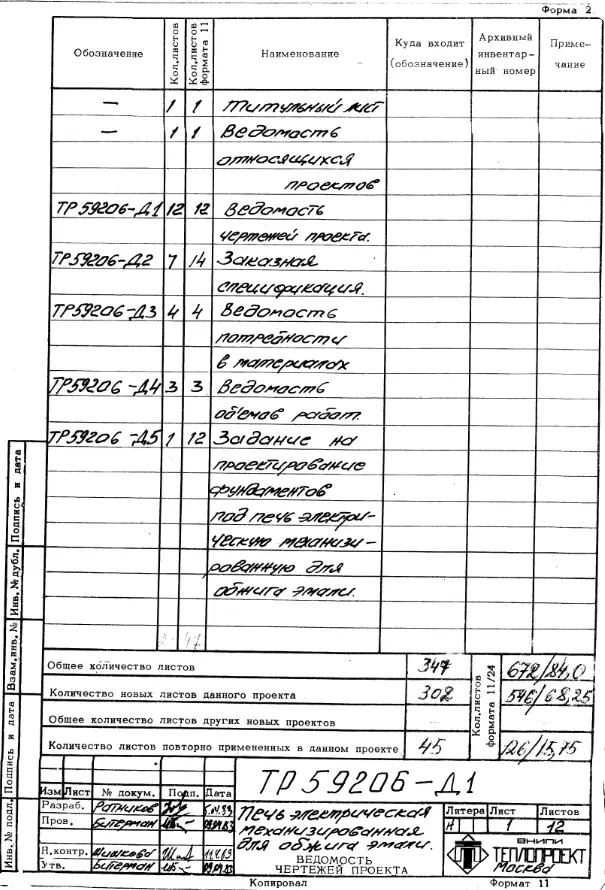 Форма 2
Обозначение Кол.листов Кол.листов формата 11 Наименование Куда входит (обозначение) Архивный инвентар-ный номер Приме-чание
— 1 1 Титульный лист
— 1 1 Ведомость
относящихся
проектов
ТР59206-Д1 12 12 Ведомость
чертежей проекта.
ТР59206-Д2 7 14 Заказная
спецификация.
ТР59206-Д3 4 4 Ведомость
потребности
в материалах
ТР59206-Д4 3 3 Ведомость
объемов работ.
ТР59206-Д5 1 12 Задание на
проектирование
фундаментов
под печь электри-
ческую механизи-
рованную для
обжига эмали.
Общее количество листов 347
Количество новых листов данного проекта 302
Общее количество листов других новых проектов
Количество листов повторно примененных в данном проекте 45
Кол.листов формата 11/24
672/84,0
546/68,25
126/15,75
Инв.№ подл. Подпись и дата Взам.инв.№ Инв.№дубл. Подпись и дата
ТР59206-Д1
Изм Лист № докум. Подп. Дата
Разраб. Ратников
Пров. Битерман
Н.контр.
Утв. Битерман
Печь электрическая
механизированная
для обжига эмали.
ВЕДОМОСТЬ
ЧЕРТЕЖЕЙ ПРОЕКТА
Литера Лист Листов
И 1 12
ВНИПИ
ТЕПЛОПРОЕКТ
Москва
Копировал Формат 11